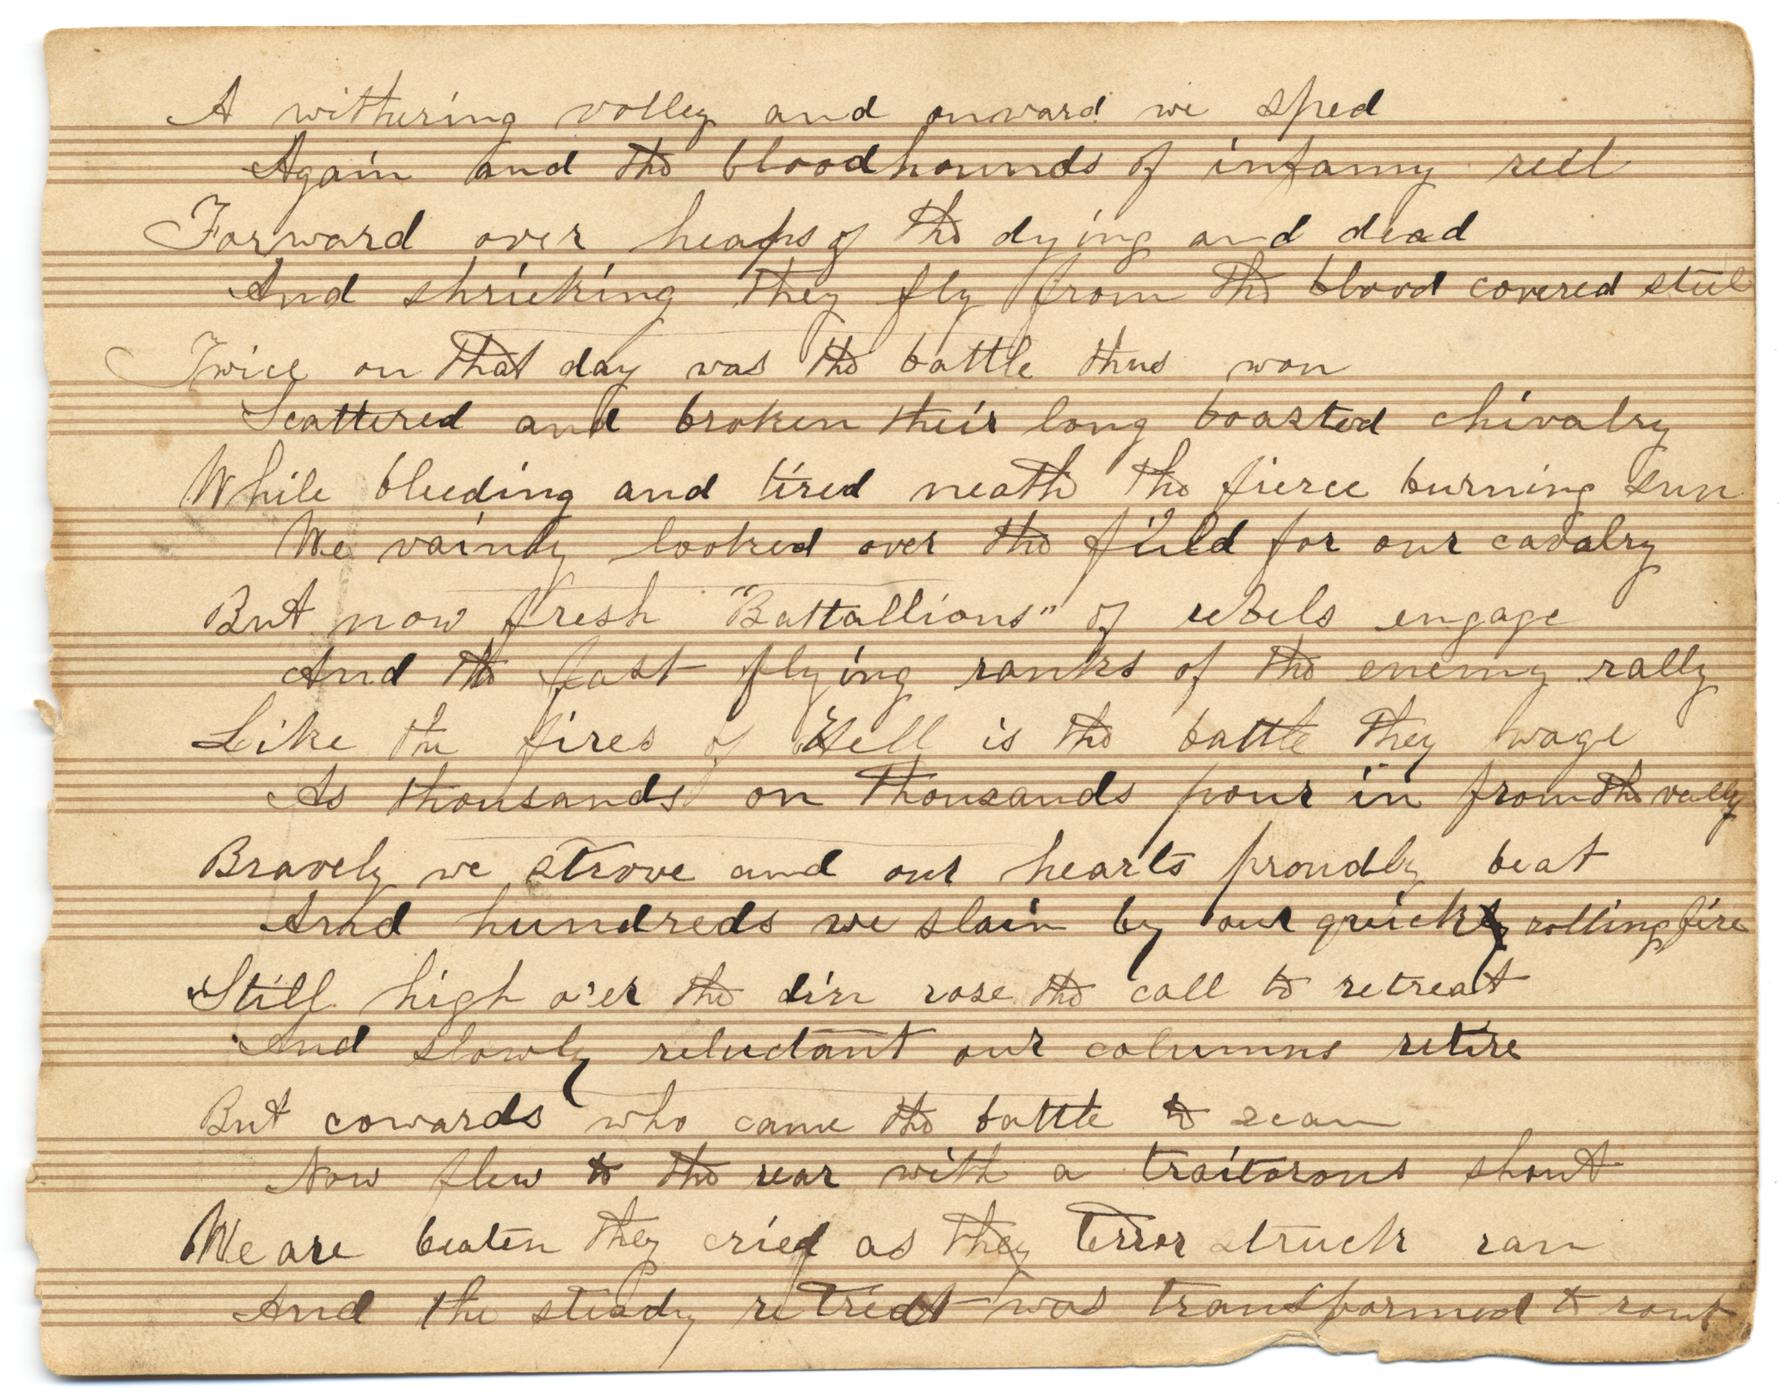 A withering volley and onward we sped
Again and the bloodhounds of infamy reel
Forward over heaps of the dying and dead
And shrieking they fly from the blood covered steel
Twice on that day was the battle thus won
Scattered and broken their long boasted chivalry
While bleeding and tired neath the fierce burning sun
We vainly looked over the field for our cavalry
But now fresh "Battallions" of rebels engage
And the fast flying ranks of the enemy rally
Like the fires of Hell is the battle they wage
As thousands on thousands pour in from the vally
Bravely we strove and our hearts proudly beat
And hundreds we slain by our quick rolling fire
Still high o'er the din rose the call to retreat
And slowly reluctant our columns retire
But cowards who came the battle to scan
Now flew to the rear with a traitorous shout
We are beaten they cried as they terror struck ran
And the steady retreat was transformed to rout